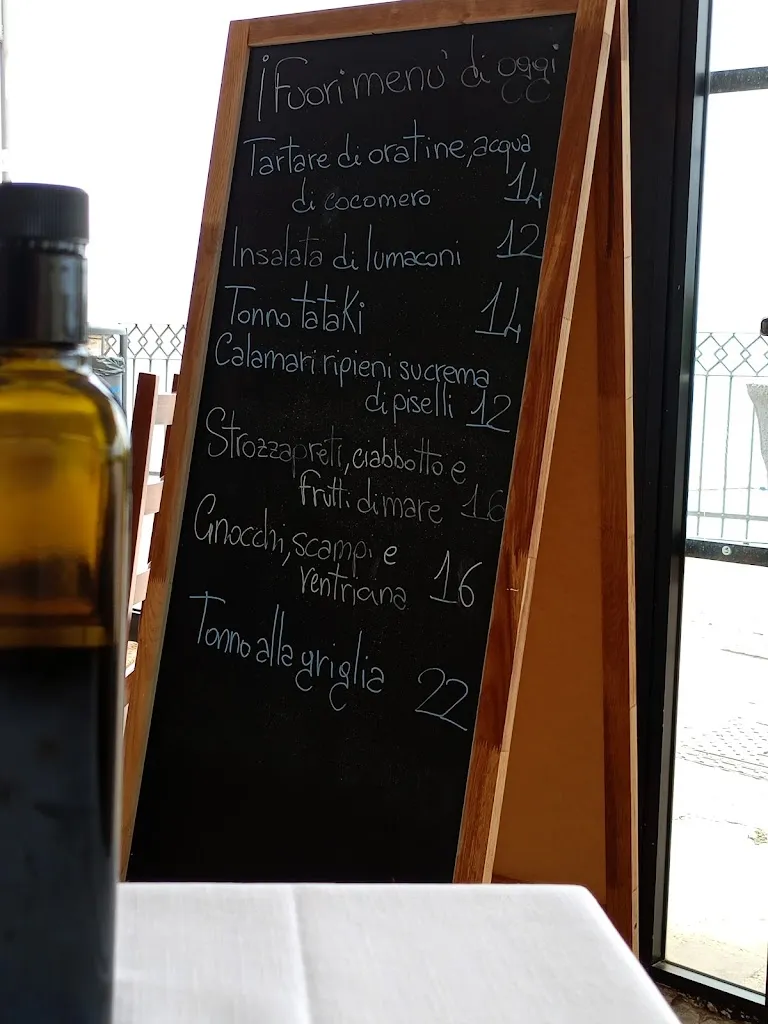 i Fuori menu' di oggi
Tartare di oratine, acqua
di cocomero 14
Insalata di lumaconi 12
Tonno tataki 14
Calamari ripieni su crema
di piselli 12
Strozzapreti, ciabbotto e
frutti di mare 16
Gnocchi, scampi e
ventriana 16
Tonno alla griglia 22